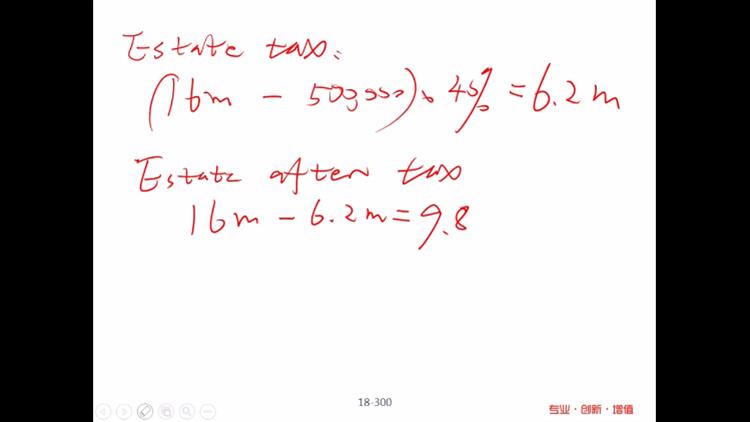 Estate tax:
(16m - 500,000) × 40% = 6.2m
Estate after tax
16m - 6.2m = 9.8
18-300
专业·创新·增值